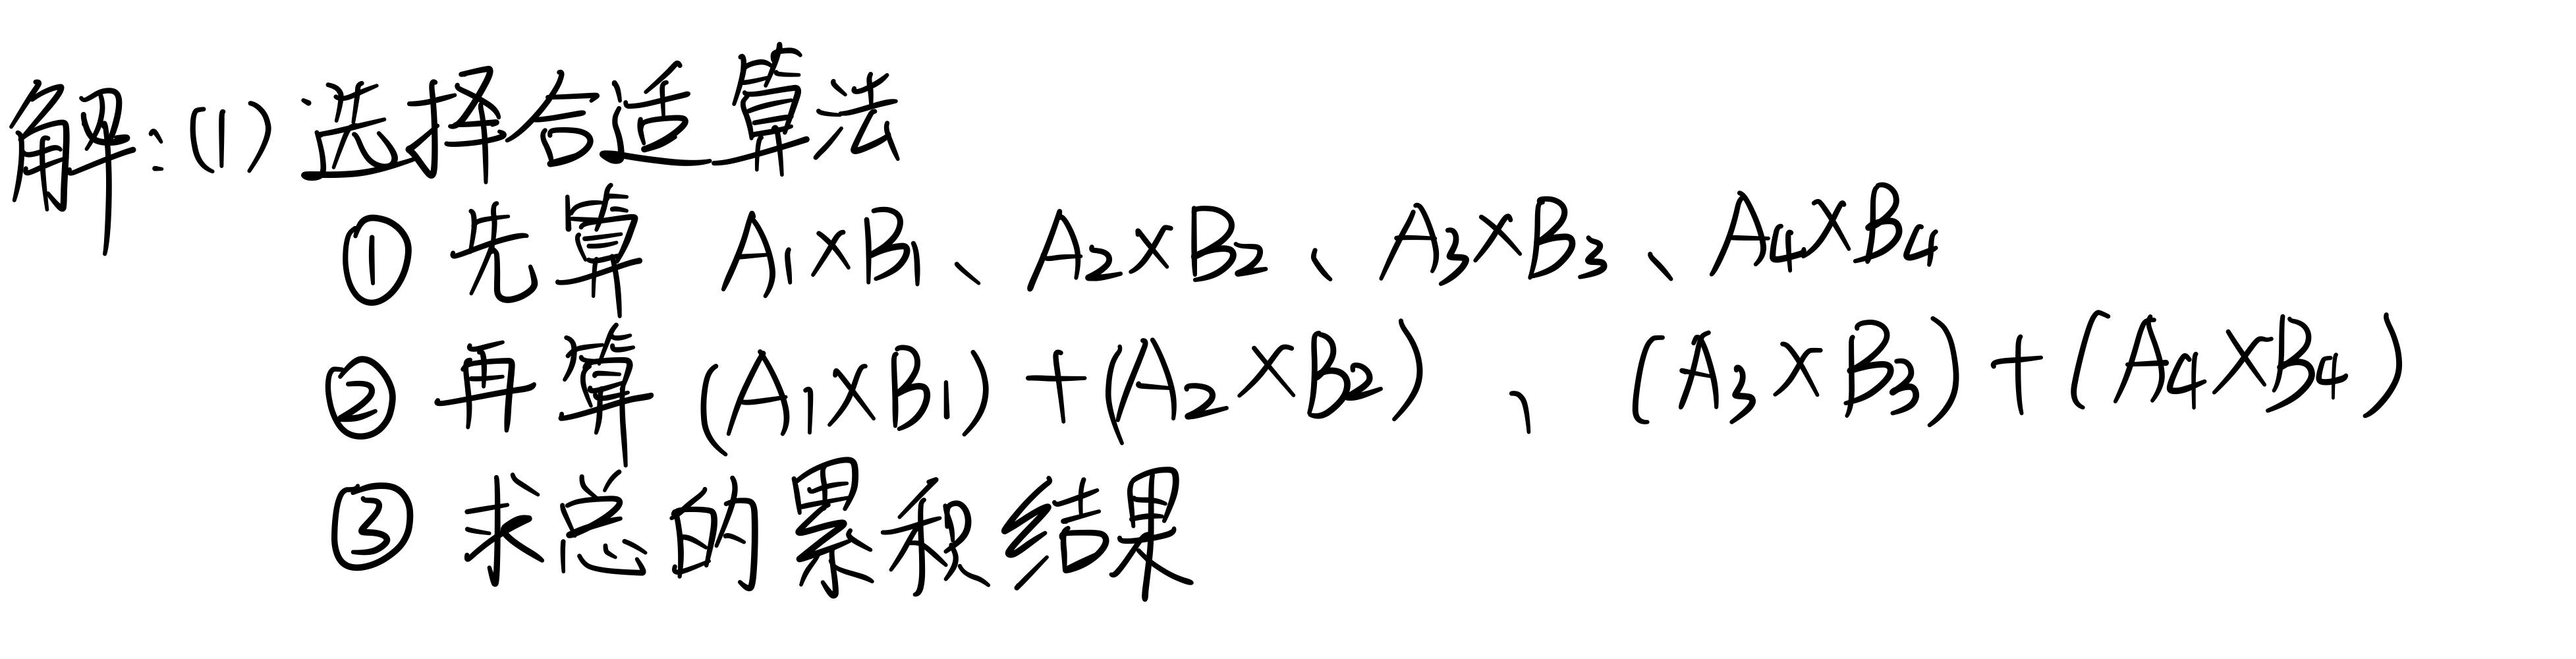 解:(1)选择合适算法
① 先算 A₁×B₁、A₂×B₂、A₃×B₃、A₄×B₄
② 再算 (A₁×B₁)+(A₂×B₂)、(A₃×B₃)+(A₄×B₄)
③ 求总的累积结果